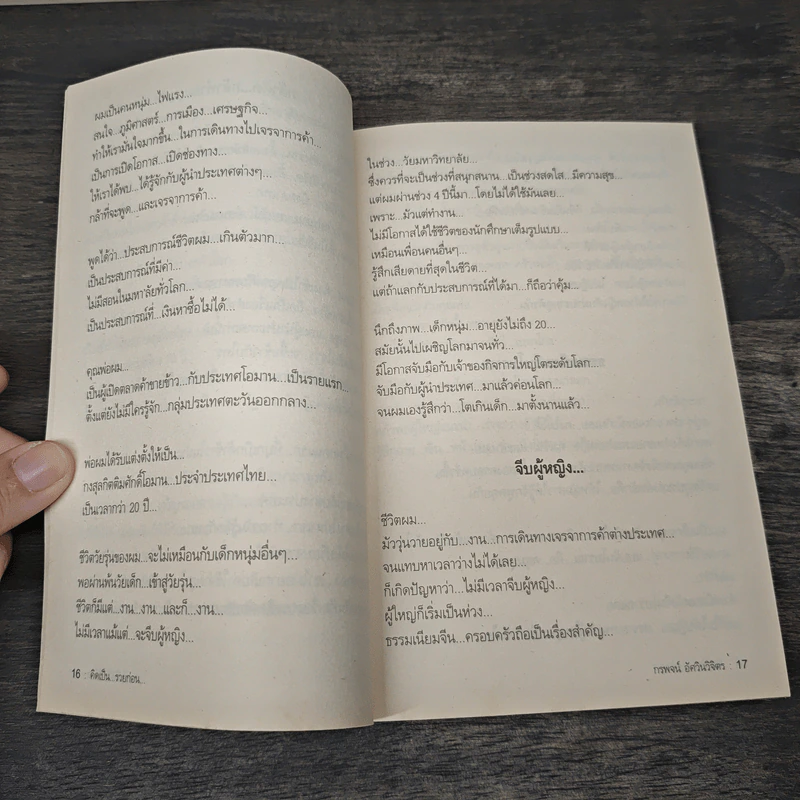 ผมเป็นคนหนุ่ม...ไฟแรง...
สนใจ...ภูมิศาสตร์...การเมือง...เศรษฐกิจ...
ทำให้เรามั่นใจมากขึ้น...ในการเดินทางไปเจรจาการค้า...
เป็นการเปิดโอกาส...เปิดช่องทาง...
ให้เราได้พบ...ได้รู้จักกับผู้นำประเทศต่างๆ...
กล้าที่จะพูด...และเจรจาการค้า...
พูดได้ว่า...ประสบการณ์ชีวิตผม...เกินตัวมาก...
เป็นประสบการณ์ที่มีค่า...
ไม่มีสอนในมหา'ลัยทั่วโลก...
เป็นประสบการณ์ที่...เงินหาซื้อไม่ได้...
คุณพ่อผม...
เป็นผู้เปิดตลาดค้าขายข้าว...กับประเทศโอมาน...เป็นรายแรก...
ตั้งแต่ยังไม่มีใครรู้จัก...กลุ่มประเทศตะวันออกกลาง...
พ่อผมได้รับแต่งตั้งให้เป็น...
กงสุลกิตติมศักดิ์โอมาน...ประจำประเทศไทย...
เป็นเวลากว่า 20 ปี...
ชีวิตวัยรุ่นของผม...จะไม่เหมือนกับเด็กหนุ่มอื่นๆ...
พอผ่านพ้นวัยเด็ก...เข้าสู่วัยรุ่น...
ชีวิตก็มีแต่...งาน...งาน...และก็...งาน...
ไม่มีเวลาแม้แต่...จะจีบผู้หญิง...
16 : คิดเป็น...รวยก่อน...
ในช่วง...วัยมหาวิทยาลัย...
ซึ่งควรที่จะเป็นช่วงที่สนุกสนาน...เป็นช่วงสดใส...มีความสุข...
แต่ผมผ่านช่วง 4 ปีนี้มา...โดยไม่ได้ใช้มันเลย...
เพราะ...มัวแต่ทำงาน...
ไม่มีโอกาสได้ใช้ชีวิตของนักศึกษาเต็มรูปแบบ...
เหมือนเพื่อนคนอื่นๆ...
รู้สึกเสียดายที่สุดในชีวิต...
แต่ถ้าแลกกับประสบการณ์ที่ได้มา...ก็ถือว่าคุ้ม...
นึกถึงภาพ...เด็กหนุ่ม...อายุยังไม่ถึง 20...
สมัยนั้นไปเผชิญโลกมาจนทั่ว...
มีโอกาสจับมือกับเจ้าของกิจการใหญ่โตระดับโลก...
จับมือกับผู้นำประเทศ...มาแล้วค่อนโลก...
จนผมเองรู้สึกว่า...โตเกินเด็ก...มาตั้งนานแล้ว...
จีบผู้หญิง...
ชีวิตผม...
มัววุ่นวายอยู่กับ...งาน...การเดินทางเจรจาการค้าต่างประเทศ...
จนแทบหาเวลาว่างไม่ได้เลย...
ก็เกิดปัญหาว่า...ไม่มีเวลาจีบผู้หญิง...
ผู้ใหญ่ก็เริ่มเป็นห่วง...
ธรรมเนียมจีน...ครอบครัวถือเป็นเรื่องสำคัญ...
กรพจน์ อัศวินวิจิตร : 17